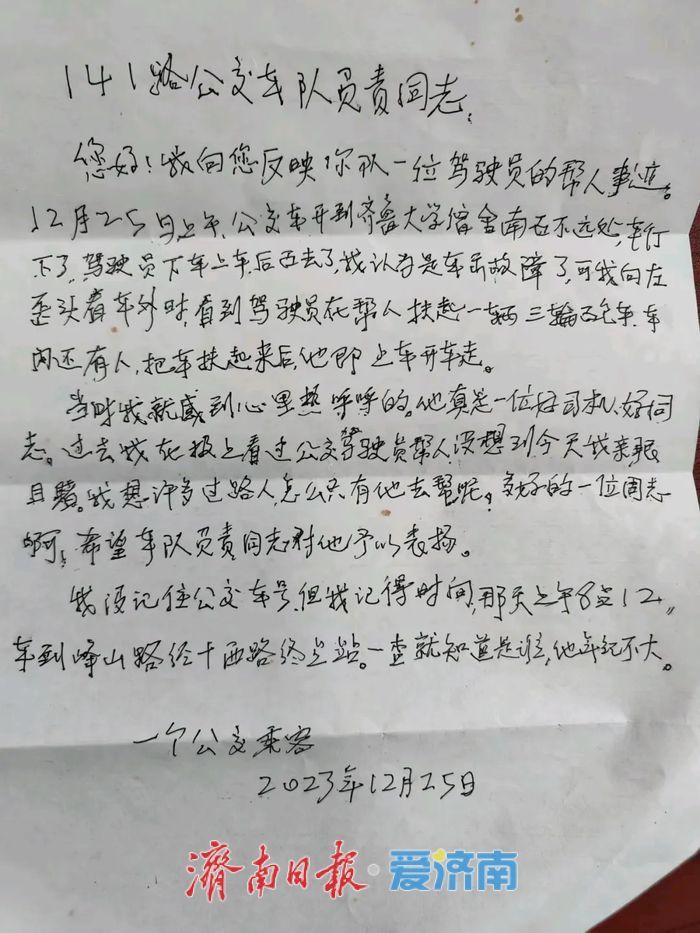 141路公交车队负责同志：
您好！我向您反映你队一位驾驶员的帮人事迹。
12月25日上午，公交车开到齐鲁大学宿舍南不远处，车停
下了，驾驶员下车上车后面去了，我认为是车出故障了，可我向左
歪头看车外时，看到驾驶员在帮人扶起一辆三轮车，车
内还有人，把车扶起来后，他即上车开车走。
当时我就感到心里热呼呼的，他真是一位好司机、好同
志。过去我在报上看过公交驾驶员帮人，没想到今天我亲眼
目睹。我想许多过路人，怎么只有他去帮呢？多好的一位同志
啊，希望车队负责同志对他予以表扬。
我没记住公交车号，但我记得时间，那天上午8点12，
车到峰山路经十西路终点站。一查就知道是谁，他年纪不大。
一个公交乘客
2023年12月25日
濟南日报·爱济南